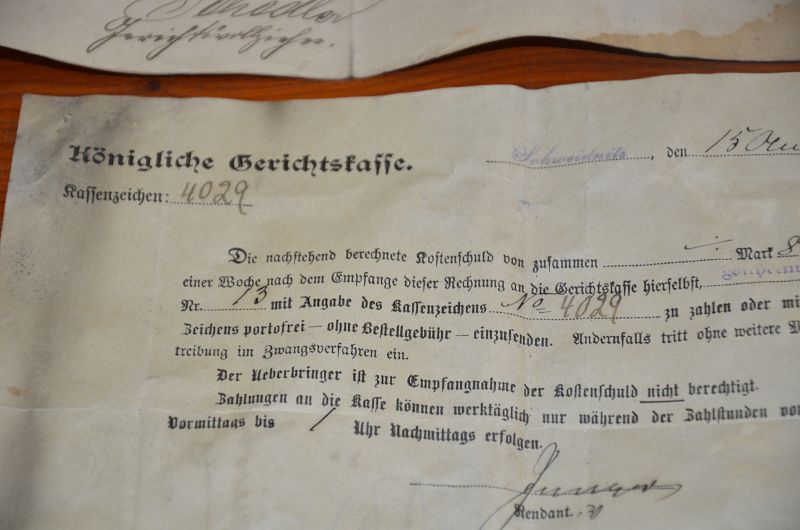 Schedler
Gerichtsvollzieher.
Königliche Gerichtskasse.
Schweidnitz, den 15
Kassenzeichen: 4029
Die nachstehend berechnete Kostenschuld von zusammen — Mark 8
einer Woche nach dem Empfange dieser Rechnung an die Gerichtskasse hierselbst,
Nr. 13 mit Angabe des Kassenzeichens No 4029 zu zahlen oder mi
Zeichens portofrei — ohne Bestellgebühr — einzusenden. Andernfalls tritt ohne weitere
treibung im Zwangsverfahren ein.
Der Ueberbringer ist zur Empfangnahme der Kostenschuld nicht berechtigt.
Zahlungen an die Kasse können werktäglich nur während der Zahlstunden vo
Vormittags bis 1 Uhr Nachmittags erfolgen.
Rendant.